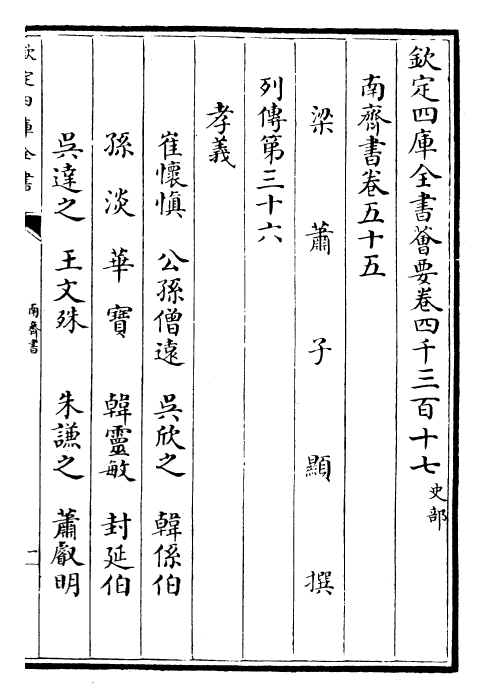 欽定四庫全書薈要卷四千三百十七 史部
南齊書卷五十五
梁蕭子顯撰
列傳第三十六
孝義
崔懷慎 公孫僧遠 吳欣之 韓係伯
孫淡 華寶 韓靈敏 封延伯
吳達之 王文殊 朱謙之 蕭叡明
欽定四庫全書
南齊書
一